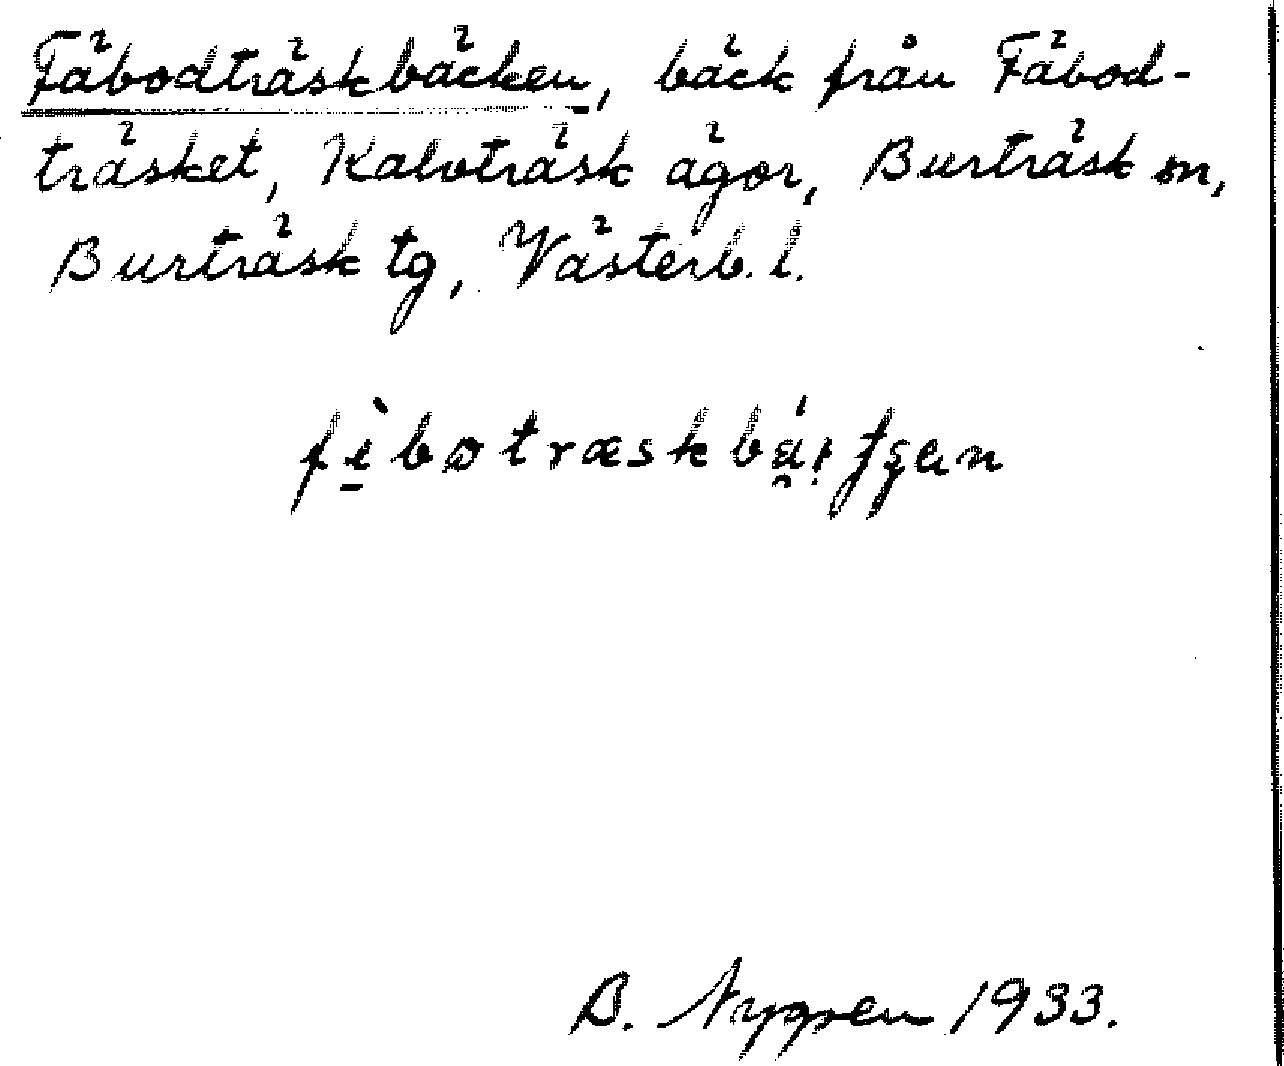 Fäbodträskbäcken, bäck från Fäbod-
träsket, Kalvträsk ägor, Burträsk sn,
Burträsk tg, Västerb. l.
B. Nygren 1933.